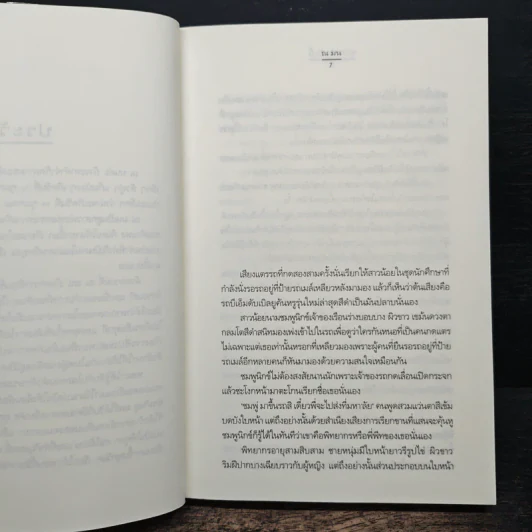 ณ มน
7
เสียงแตรรถที่กดสองสามครั้งนั่นเรียกให้สาวน้อยในชุดนักศึกษาที่
กำลังนั่งรอรถอยู่ที่ป้ายรถเมล์เหลียวหลังมามอง แล้วก็เห็นว่าต้นเสียงคือ
รถบีเอ็มดับเบิลยูคันหรูรุ่นใหม่ล่าสุดสีดำเป็นมันปลาบนั่นเอง
สาวน้อยนามชมพูนิกข์เจ้าของเรือนร่างบอบบาง ผิวขาว เขม้นดวงตา
กลมโตสีดำสนิทมองเพ่งเข้าไปในรถเพื่อดูว่าใครกันหนอที่เป็นคนกดแตร
ไม่เฉพาะแต่เธอเท่านั้นหรอกที่เหลียวมองเพราะผู้คนที่ยืนรอรถอยู่ที่ป้าย
รถเมล์อีกหลายคนก็หันมามองด้วยความสนใจเหมือนกัน
ชมพูนิกข์ไม่ต้องสงสัยนานนักเพราะเจ้าของรถกดเลื่อนเปิดกระจก
แล้วชะโงกหน้ามาตะโกนเรียกชื่อเธอนั่นเอง
'ชมพู่ มาขึ้นรถสิ เดี๋ยวพี่จะไปส่งที่มหา'ลัย' คนพูดสวมแว่นตาสีเข้ม
บดบังใบหน้า แต่ถึงอย่างนั้นด้วยสำเนียงเสียงการเรียกขานที่แสนจะคุ้นหู
ชมพูนิกข์ก็รู้ได้ในทันทีว่าเขาคือพิทยากรหรือพี่พีทของเธอนั่นเอง
พิทยากรอายุสามสิบสาม ชายหนุ่มมีใบหน้ายาวรีรูปไข่ ผิวขาว
ริมฝีปากบางเฉียบราวกับผู้หญิง แต่ถึงอย่างนั้นส่วนประกอบบนใบหน้า